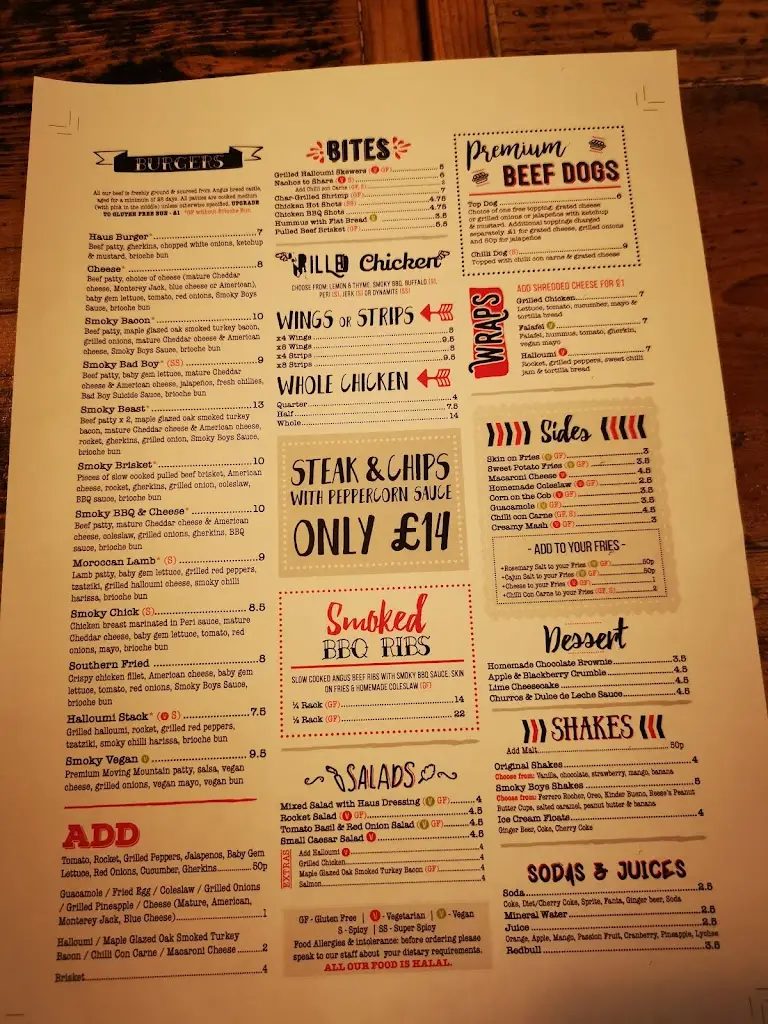 BURGERS
All our beef is freshly ground & sourced from Angus breed cattle,
aged for a minimum of 28 days. All patties are cooked medium
(with pink in the middle) unless otherwise specified. UPGRADE
TO GLUTEN FREE BUN - £1 *GF without Brioche Bun
Haus Burger* 7
Beef patty, gherkins, chopped white onions, ketchup
& mustard, brioche bun
Cheese* 8
Beef patty, choice of cheese (mature Cheddar
cheese, Monterey Jack, blue cheese or American),
baby gem lettuce, tomato, red onions, Smoky Boys
Sauce, brioche bun
Smoky Bacon* 10
Beef patty, maple glazed oak smoked turkey bacon,
grilled onions, mature Cheddar cheese & American
cheese, Smoky Boys Sauce, brioche bun
Smoky Bad Boy* (SS) 9
Beef patty, baby gem lettuce, mature Cheddar
cheese & American cheese, jalapeños, fresh chillies,
Bad Boy Suicide Sauce, brioche bun
Smoky Beast* 13
Beef patty x 2, maple glazed oak smoked turkey
bacon, mature Cheddar cheese & American cheese,
rocket, gherkins, grilled onion, Smoky Boys Sauce,
brioche bun
Smoky Brisket* 10
Pieces of slow cooked pulled beef brisket, American
cheese, rocket, gherkins, grilled onion, coleslaw,
BBQ sauce, brioche bun
Smoky BBQ & Cheese* 10
Beef patty, mature Cheddar cheese & American
cheese, coleslaw, grilled onions, gherkins, BBQ
sauce, brioche bun
Moroccan Lamb* (S) 9
Lamb patty, baby gem lettuce, grilled red peppers,
tzatziki, grilled halloumi cheese, smoky chilli
harissa, brioche bun
Smoky Chick (S) 8.5
Chicken breast marinated in Peri sauce, mature
Cheddar cheese, baby gem lettuce, tomato, red
onions, mayo, brioche bun
Southern Fried 8
Crispy chicken fillet, American cheese, baby gem
lettuce, tomato, red onions, Smoky Boys Sauce,
brioche bun
Halloumi Stack* (V S) 7.5
Grilled halloumi, rocket, grilled red peppers,
tzatziki, smoky chilli harissa, brioche bun
Smoky Vegan V 9.5
Premium Moving Mountain patty, salsa, vegan
cheese, grilled onions, vegan mayo, vegan bun
ADD
Tomato, Rocket, Grilled Peppers, Jalapenos, Baby Gem
Lettuce, Red Onions, Cucumber, Gherkins 50p
Guacamole / Fried Egg / Coleslaw / Grilled Onions
/ Grilled Pineapple / Cheese (Mature, American,
Monterey Jack, Blue Cheese) 1
Halloumi / Maple Glazed Oak Smoked Turkey
Bacon / Chilli Con Carne / Macaroni Cheese 2
Brisket 4
BITES
Grilled Halloumi Skewers (V GF) 5
Nachos to Share (V S) 6
Add Chilli con Carne (GF, S) 2
Char-Grilled Shrimp (GF) 7
Chicken Hot Shots (SS) 4.75
Chicken BBQ Shots 4.75
Hummus with Flat Bread V 3.5
Pulled Beef Brisket (GF) 5.5
GRILLED Chicken
CHOOSE FROM: LEMON & THYME, SMOKY BBQ, BUFFALO (S),
PERI (S), JERK (S) OR DYNAMITE (SS)
WINGS OR STRIPS
x4 Wings 5
x8 Wings 9.5
x4 Strips 5
x8 Strips 9.5
WHOLE CHICKEN
Quarter 4
Half 7.5
Whole 14
STEAK & CHIPS
WITH PEPPERCORN SAUCE
ONLY £14
Smoked
BBQ RIBS
SLOW COOKED ANGUS BEEF RIBS WITH SMOKY BBQ SAUCE, SKIN
ON FRIES & HOMEMADE COLESLAW (GF)
¼ Rack (GF) 14
½ Rack (GF) 22
SALADS
Mixed Salad with Haus Dressing (V GF) 4
Rocket Salad (V GF) 4.5
Tomato Basil & Red Onion Salad (V GF) 4.5
Small Caesar Salad V 4.5
EXTRAS
Add Halloumi V 4
Grilled Chicken 4
Maple Glazed Oak Smoked Turkey Bacon (GF) 4
Salmon 4
GF - Gluten Free | V - Vegetarian | V - Vegan
S - Spicy | SS - Super Spicy
Food Allergies & intolerance: before ordering please
speak to our staff about your dietary requirements.
ALL OUR FOOD IS HALAL.
Premium
BEEF DOGS
Top Dog 6
Choice of one free topping: grated cheese
or grilled onions or jalapeños with ketchup
& mustard. Additional toppings charged
separately. £1 for grated cheese, grilled onions
and 50p for jalapeños
Chilli Dog (S) 9
Topped with chilli con carne & grated cheese
WRAPS
ADD SHREDDED CHEESE FOR £1
Grilled Chicken 7
Lettuce, tomato, cucumber, mayo &
tortilla bread
Falafel V 7
Falafel, hummus, tomato, gherkin,
vegan mayo
Halloumi V 7
Rocket, grilled peppers, sweet chilli
jam & tortilla bread
Sides
Skin on Fries (V GF) 3
Sweet Potato Fries (V GF) 3.5
Macaroni Cheese V 4.5
Homemade Coleslaw (V GF) 2.5
Corn on the Cob (V GF) 3.5
Guacamole (V GF) 3.5
Chilli con Carne (GF, S) 4.5
Creamy Mash (V GF) 3
- ADD TO YOUR FRIES -
•Rosemary Salt to your Fries (V GF) 50p
•Cajun Salt to your Fries (V GF) 50p
•Cheese to your Fries (V GF) 1
•Chilli Con Carne to your Fries (GF, S) 2
Dessert
Homemade Chocolate Brownie 3.5
Apple & Blackberry Crumble 4.5
Lime Cheesecake 4.5
Churros & Dulce de Leche Sauce 4.5
SHAKES
Add Malt 50p
Original Shakes 4
Choose from: Vanilla, chocolate, strawberry, mango, banana
Smoky Boys Shakes 5
Choose from: Ferrero Rocher, Oreo, Kinder Bueno, Reese's Peanut
Butter Cups, salted caramel, peanut butter & banana
Ice Cream Floats 4
Ginger Beer, Coke, Cherry Coke
SODAS & JUICES
Soda 2.5
Coke, Diet/Cherry Coke, Sprite, Fanta, Ginger beer, Soda
Mineral Water 2.5
Juice 2.5
Orange, Apple, Mango, Passion Fruit, Cranberry, Pineapple, Lychee
Redbull 3.5